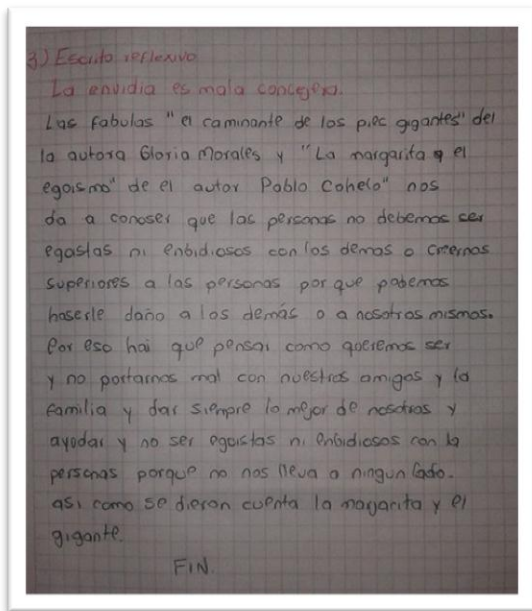 3) Escrito reflexivo
La envidia es mala concejera.
Las fabulas "el caminante de los piec gigantes" del
la autora Gloria Morales y "La margarita y el
egoismo" de el autor Pablo Cohelo" nos
da a conoser que las personas no debemos ser
egastas ni enbidiosos con los demas o creernos
superiores a las personas por que podemos
haserle daño a los demás o a nosotros mismos.
Por eso hai que pensar como queremos ser
y no portarnos mal con nuestros amigos y la
familia y dar siempre lo mejor de nosotros y
ayudar y no ser egoistas ni enbidiosos con la
personas porque no nos lleva a ningun lado.
asi como se dieron cuenta la margarita y el
gigante.
FIN.